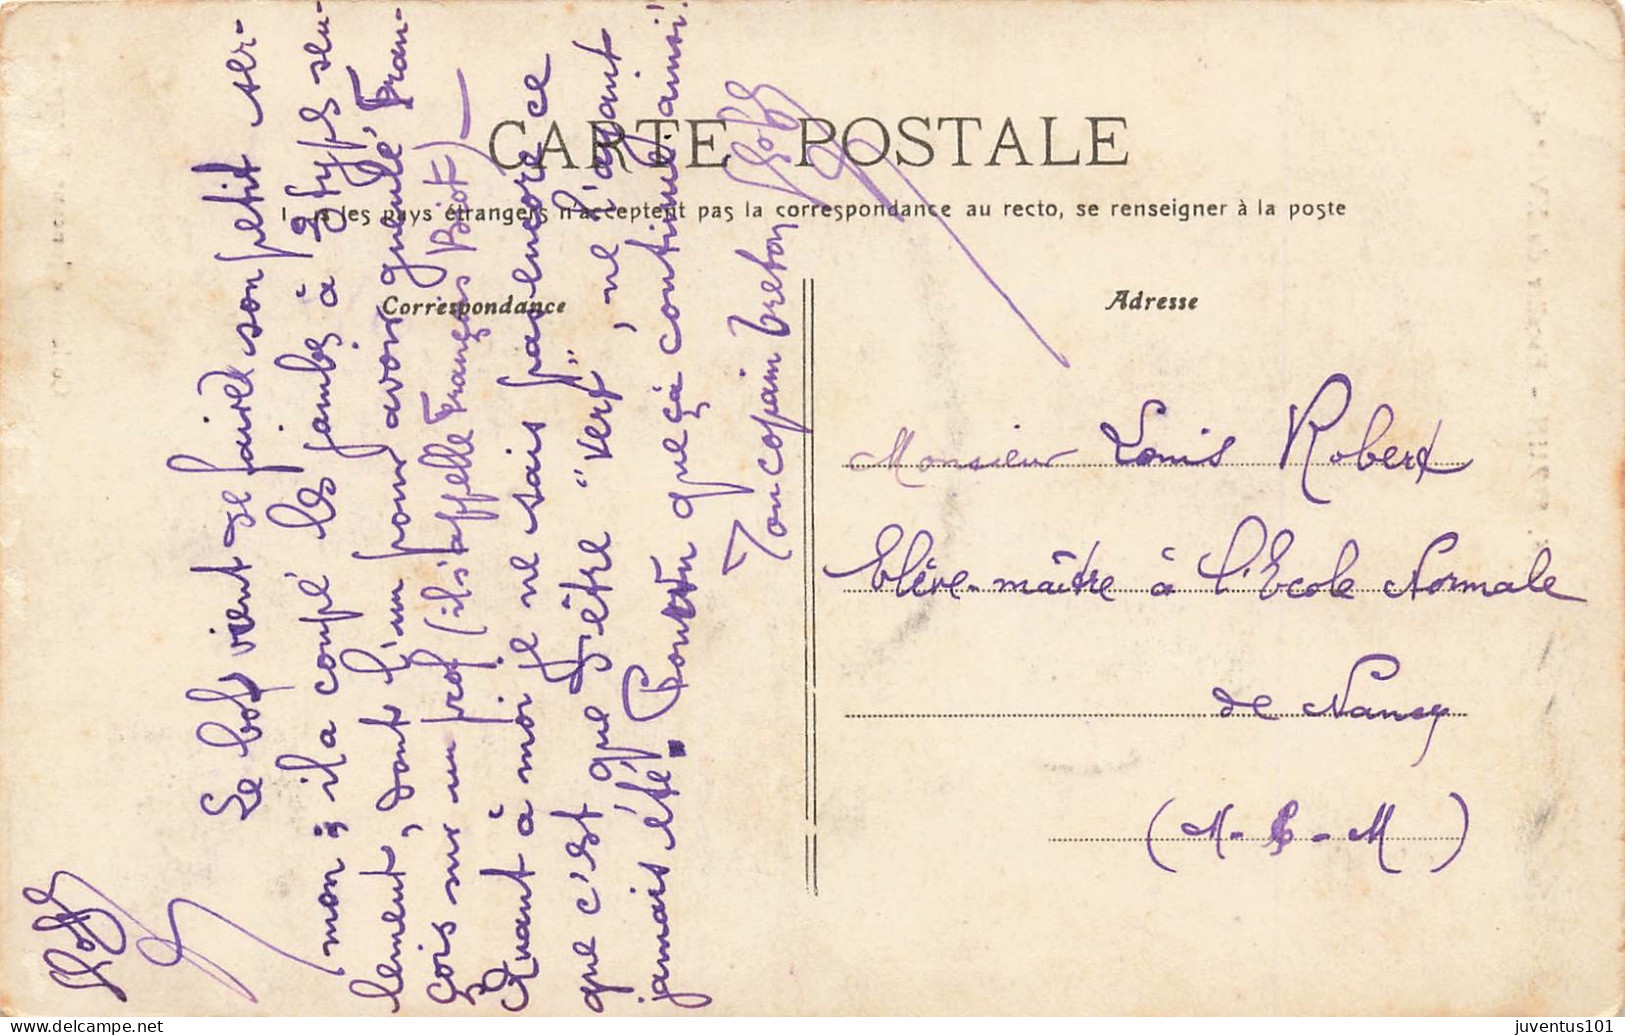 CARTE POSTALE
les pays étrangers n'acceptent pas la correspondance au recto, se renseigner à la poste
Correspondance
Adresse
Le bof vient de faire son petit ser-
mon; il a coupé les jambes à 3 typs seu-
lement, dont l'un pour avoir gueulé, Fran-
çois sur un prof (il s'appelle François Biot)
Quant à moi je ne sais pas encore ce
que c'est que d'être "vert", ne l'ayant
jamais été. Pourvu que çà continue ainsi!
Ton copain breton
Monsieur Louis Robert
Elève-maître à l'Ecole Normale
de Nancy
(M-&-M)
juventus101